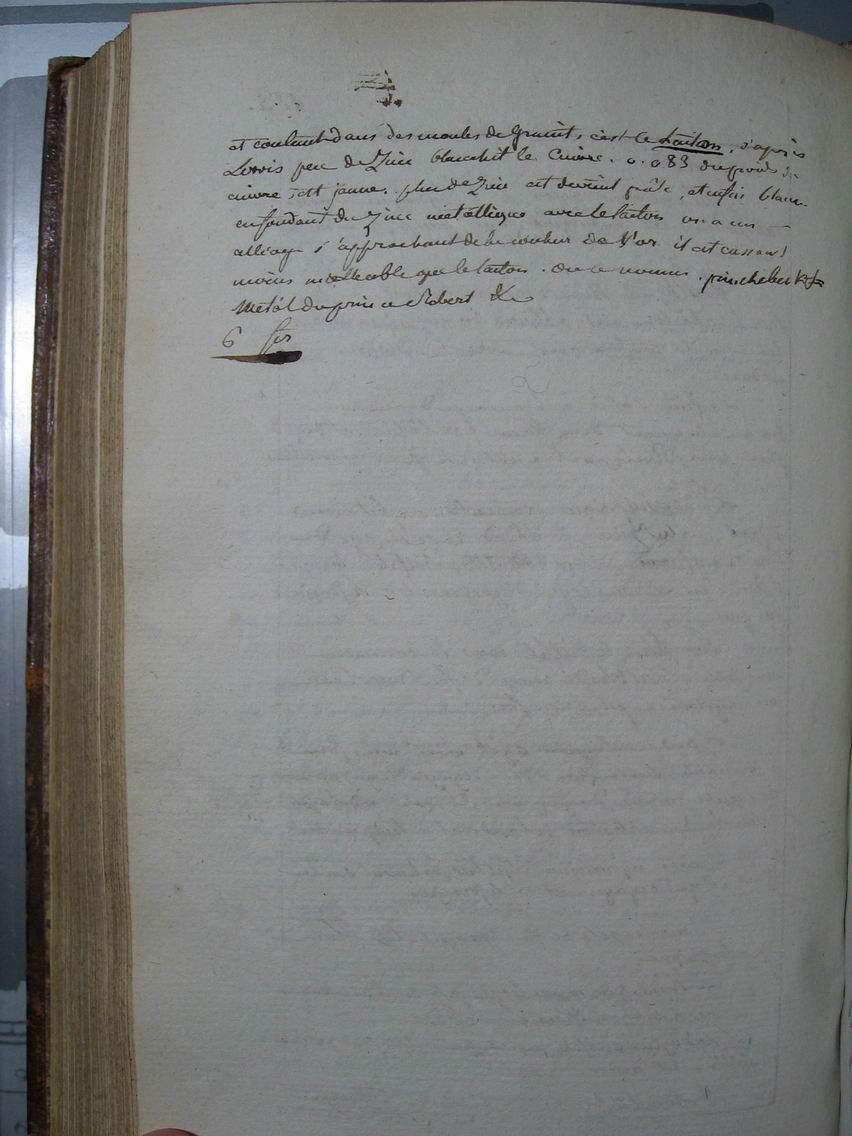 et coulent dans des moules de granit, c'est le laiton, d'après
Lewis peu de Zinc blanchit le Cuivre. 0.083 du poids de
cuivre, est jaune. plus de Zinc et devient pâle, et enfin blanc
en fondant du Zinc métallique avec le laiton on a un
alliage s'approchant de la couleur de l'or il est cassant
moins malleable que le laiton. on le nomme. pinchebeck
Métal du prince Robert &c
6 fer